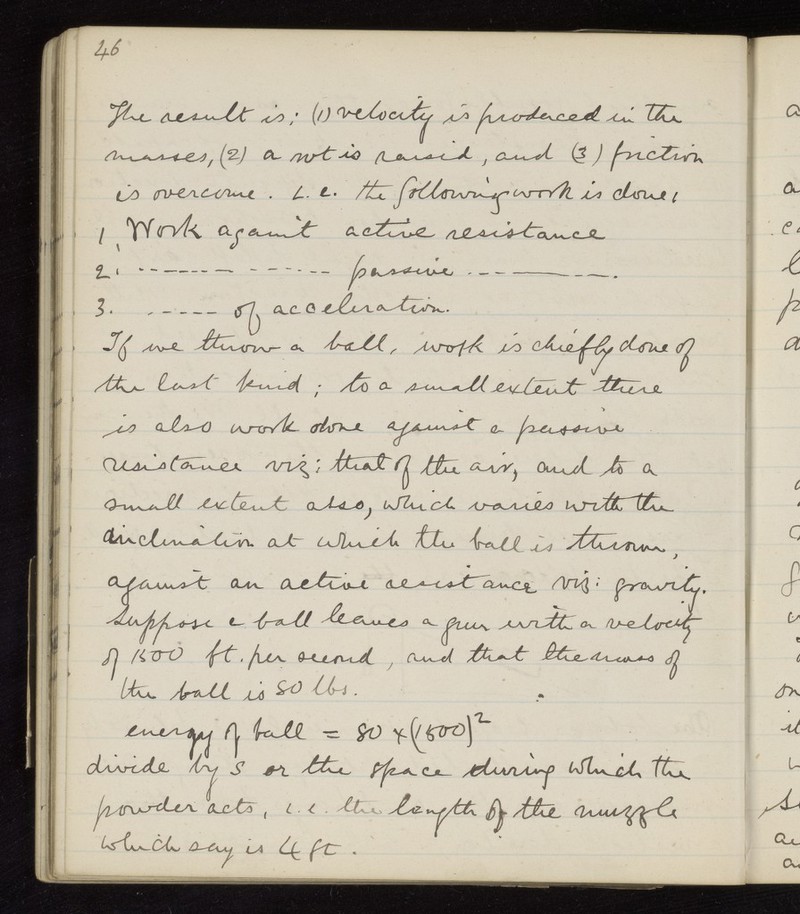 46
The result is; (1) velocity is produced in the
masses, (2) a wt is raisid, and (3) friction
is overcome. i.e. the following work is done,
1, Work against active resistance
2. ------- ------ passive ---------.
3. ----- of acceleration.
If we throw a ball, work is chiefly done of
the last kind; to a small extent there
is also work done against a passive
resistance viz: that of the air, and to a
small extent also, which varies with the
inclination at which the ball is thrown,
against an active resistance viz: gravity.
Suppose a ball leaves a gun with a velocity
of 1500 ft. per second, and that the mass of
the ball is 80 lbs.
energy of ball = 80 x (1500)²
divide by s or the space during which the
powder acts, i.e. the length of the muzzle
which say is 4 ft.